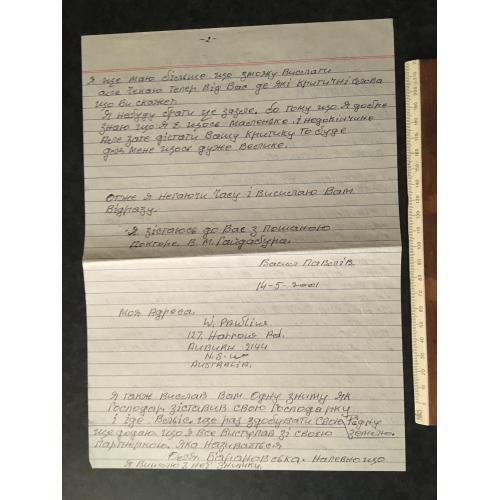 -2-
Я ще маю більше що зможу вислати
але чекаю тепер від Вас де які критичні слова
що Ви скажет
Я небуду брати це заэле, бо тому що я добре
знаю що я є щось маленьке і недокінчине
Але зате дістати Вашу критику то буде
для мене щось дуже велике.
Отже я негаючи часу і висилаю Вам
відразу.
Я зістаюсь до Вас з пошаною
Докторе. В. М. Гайдабура.
Василь Павлів
14-5-2001
Моя Адреса.
W. Pawliw
127. Harrow Rd.
AUBURN 2144
N.S.W
AUSTRALIA.
Я також вислав Вам одну зниму як
Господар зіставив свою господарку
і іде велвіс. ще раз здобувати свою Рідну
ще додаю що я все виступав зі своєю землю.
партнеркою. яка називається
Барановська. напевно що
я вишлю з неї знимки